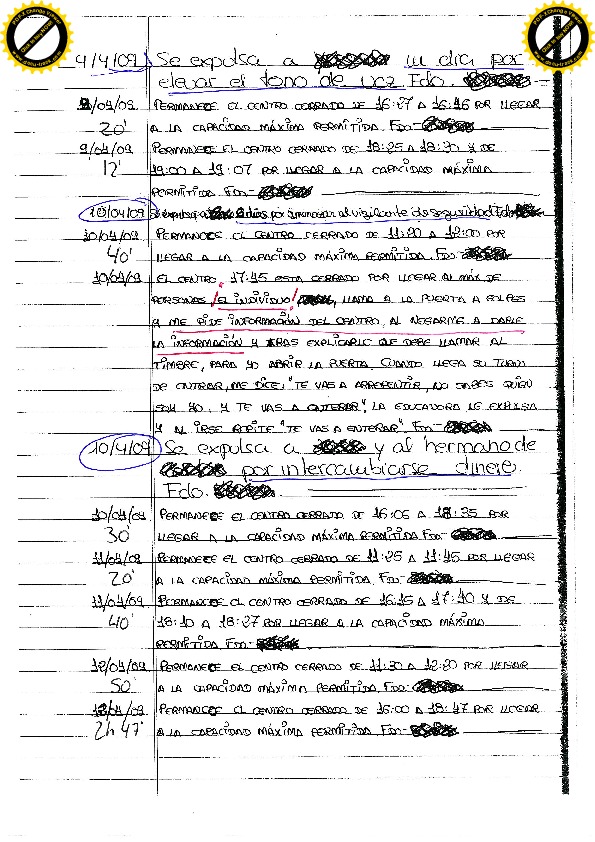 9/4/09 Se expulsa a un dia por
elevar el tono de voz Fdo.
9/04/09 PERMANECE EL CENTRO CERRADO DE 16:27 A 16:46 POR LLEGAR
20' A LA CAPACIDAD MÁXIMA PERMITIDA. FDO-
9/04/09 PERMANECE EL CENTRO CERRADO DE 18:25 A 18:30 Y DE
12' 19:00 A 19:07 POR LLEGAR A LA CAPACIDAD MÁXIMA
PERMITIDA. FDO-
10/04/09 Se expulsa a dias por amenazar al vigilante de seguridad. Fdo
10/04/09 PERMANECE EL CENTRO CERRADO DE 11:20 A 12:00 POR
40' LLEGAR A LA CAPACIDAD MÁXIMA PERMITIDA. FDO-
10/04/09 EL CENTRO, 17:45 ESTA CERRADO POR LLEGAR AL MÁX DE
PERSONAS, EL INDIVIDUO, LLAMA A LA PUERTA A GOLPES
Y ME PIDE INFORMACIÓN DEL CENTRO, AL NEGARME A DARLE
LA INFORMACIÓN Y TRAS EXPLICARLE QUE DEBE LLAMAR AL
TIMBRE, PARA YO ABRIR LA PUERTA. CUANDO LLEGA SU TURNO
DE ENTRAR, ME DICE, "TE VAS A ARREPENTIR, NO SABES QUIEN
SOY YO. Y TE VAS A ENTERAR" LA EDUCADORA LE EXPULSA
Y AL IRSE REPITE "TE VAS A ENTERAR". FDO-
10/4/09 Se expulsa a y al hermano de
por intercambiarse dinero.
Fdo.
10/04/09 PERMANECE EL CENTRO CERRADO DE 16:05 A 18:35 POR
30' LLEGAR A LA CAPACIDAD MÁXIMA PERMITIDA FDO-
11/04/09 PERMANECE EL CENTRO CERRADO DE 11:25 A 11:45 POR LLEGAR
20' A LA CAPACIDAD MÁXIMA PERMITIDA. FDO-
11/04/09 PERMANECE EL CENTRO CERRADO DE 16:15 A 17:10 Y DE
40' 18:10 A 18:27 POR LLEGAR A LA CAPACIDAD MÁXIMA
PERMITIDA. FDO-
12/04/09 PERMANECE EL CENTRO CERRADO DE 11:30 A 12:20 POR LLEGAR
50' A LA CAPACIDAD MÁXIMA PERMITIDA. FDO-
12/04/09 PERMANECE EL CENTRO CERRADO DE 16:00 A 18:47 POR LLEGAR
2h 47' A LA CAPACIDAD MÁXIMA PERMITIDA FDO-